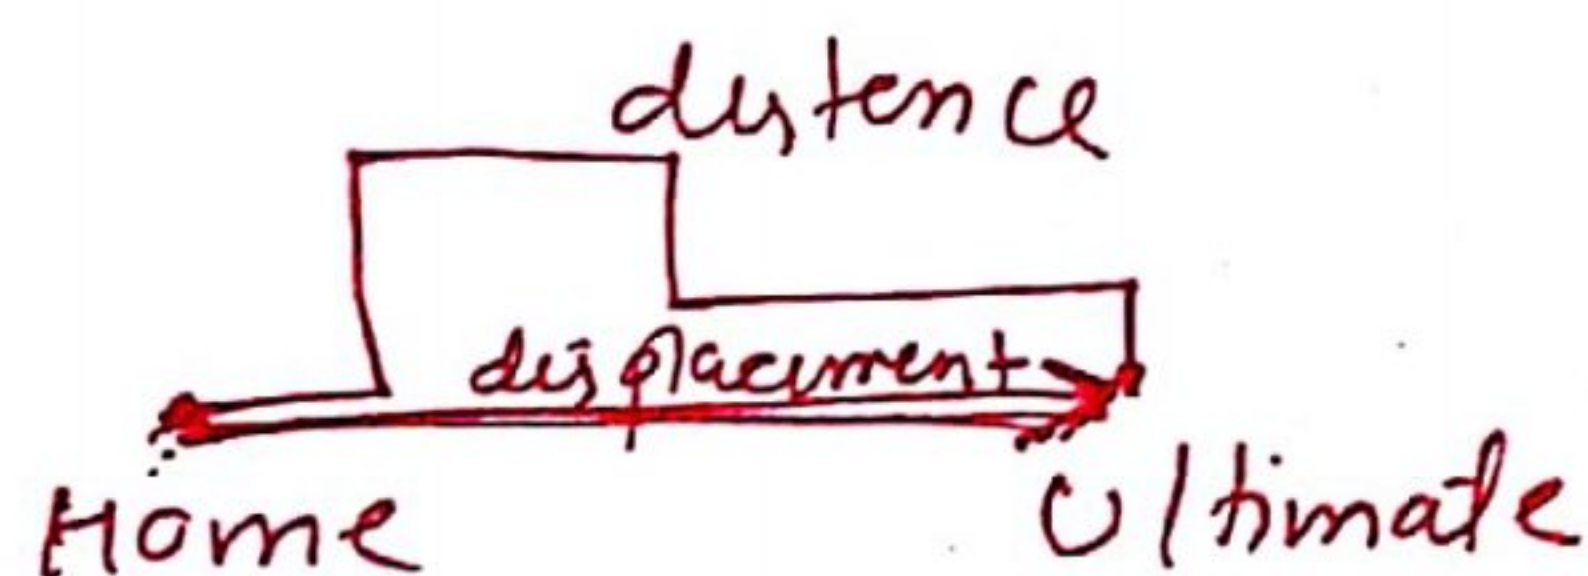 distence
displacement
Home
Ultimate